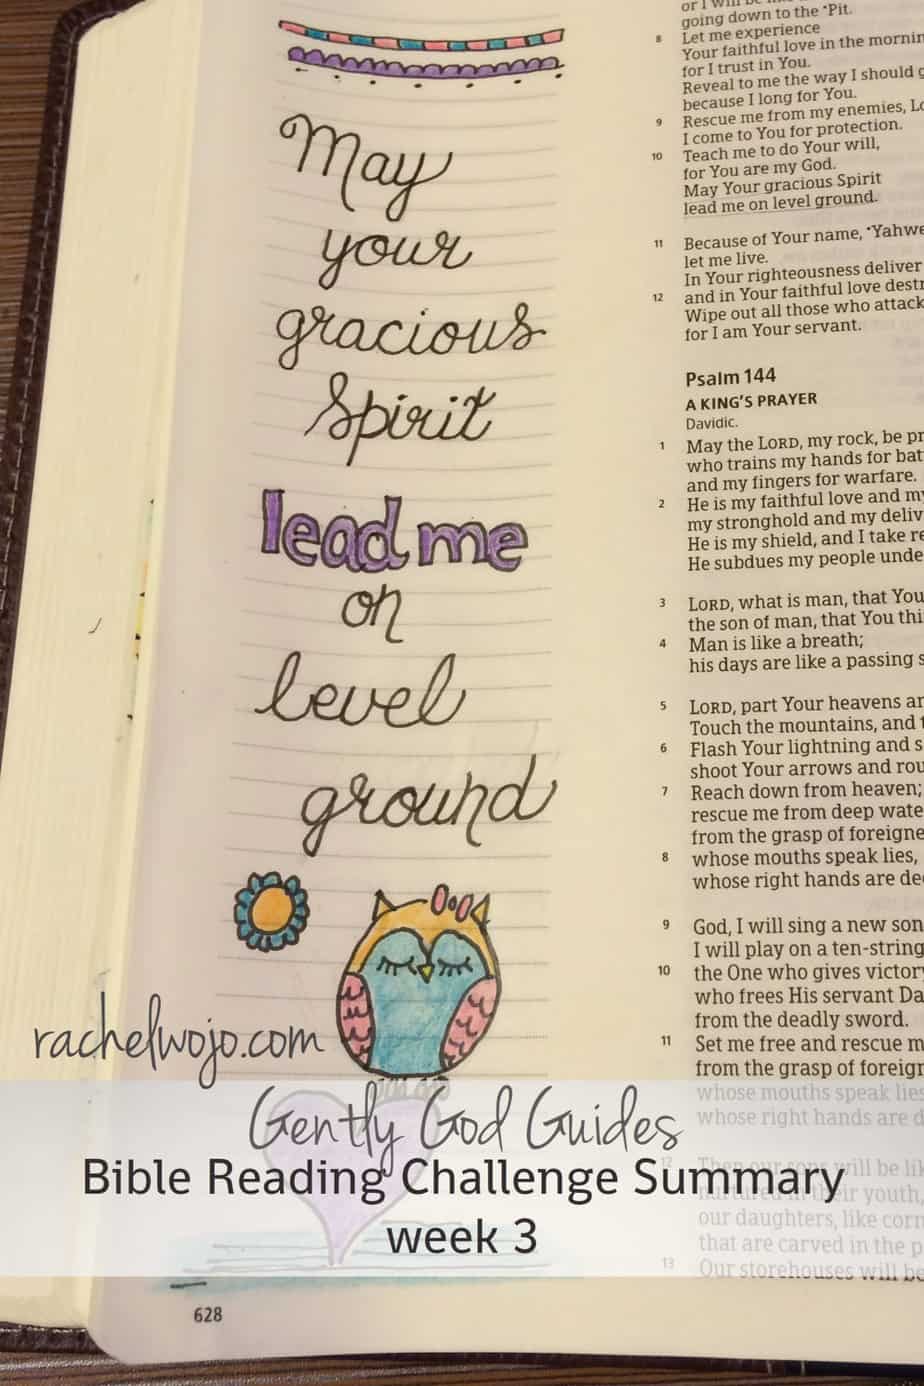 May
your
gracious
Spirit
lead me
on
level
ground
rachelwojo.com
Gently God Guides
Bible Reading Challenge Summary
week 3
628
going down to the *Pit.
8 Let me experience
Your faithful love in the mornin
for I trust in You.
Reveal to me the way I should g
because I long for You.
9 Rescue me from my enemies, Lo
I come to You for protection.
10 Teach me to do Your will,
for You are my God.
May Your gracious Spirit
lead me on level ground.
11 Because of Your name, *Yahwe
let me live.
In Your righteousness deliver
12 and in Your faithful love destr
Wipe out all those who attack
for I am Your servant.
Psalm 144
A KING'S PRAYER
Davidic.
1 May the LORD, my rock, be pr
who trains my hands for bat
and my fingers for warfare.
2 He is my faithful love and my
my stronghold and my deliv
He is my shield, and I take re
He subdues my people unde
3 LORD, what is man, that You
the son of man, that You thi
4 Man is like a breath;
his days are like a passing s
5 LORD, part Your heavens an
Touch the mountains, and t
6 Flash Your lightning and s
shoot Your arrows and rou
7 Reach down from heaven;
rescue me from deep wate
from the grasp of foreigne
8 whose mouths speak lies,
whose right hands are de
9 God, I will sing a new son
I will play on a ten-string
10 the One who gives victory
who frees His servant Da
from the deadly sword.
11 Set me free and rescue m
from the grasp of foreign
whose mouths speak lies
whose right hands are d
12 Then our sons will be lik
nurtured in their youth,
our daughters, like corn
that are carved in the p
13 Our storehouses will be